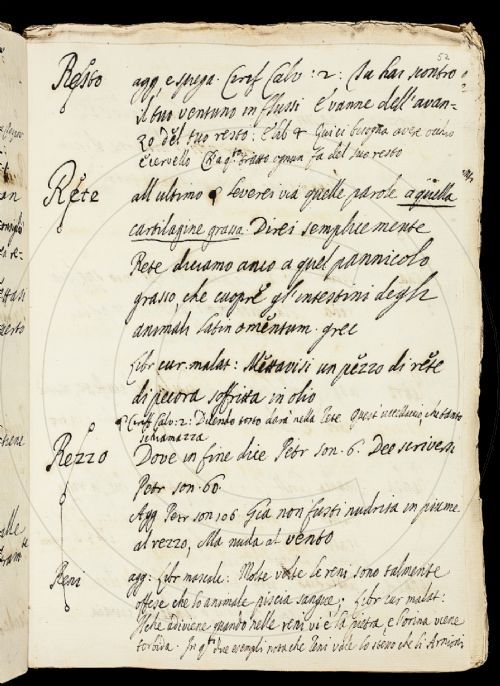 52
Resto agg. e spega. Ciriff Calv: 2: Tu hai scontro
il tuo ventuno in flussi E vanne dell'avan-
zo del tuo resto: E lab 4 Qui ci bisogna avere occhio
E cervello Ch'a q.to tratto ognun fa del suo resto
Rete all'ultimo leverei via quelle parole a quella
cartilagine grassa. Direi semplicemente
Rete diciamo anco a quel pannicolo
grasso, che cuopre gl'intestini degli
animali latin omentum. grec
Libr cur. malat: Mettavisi un pezzo di rete
di pecora soffritta in olio
Ciriff Calv: 2: Dicendo tosto darà nella Rete Quest' uccellaccio, che tanto
schiamazza
Rezzo Dove in fine dice Petr son. 6. Deo scrivere
Petr son. 60.
Agg Petr son 106 Già non fusti nudrita in piume
al rezzo, Ma nuda al vento
Reni agg: Libr mascale: Molte volte le reni sono talmente
offese che lo animale piscia sangue. Libr cur malat:
adiviene quando nelle reni vi è la pietra, e l'orina viene
torbida. In q.ti due esempli nota che Reni vale lo stesso che li Arnioni